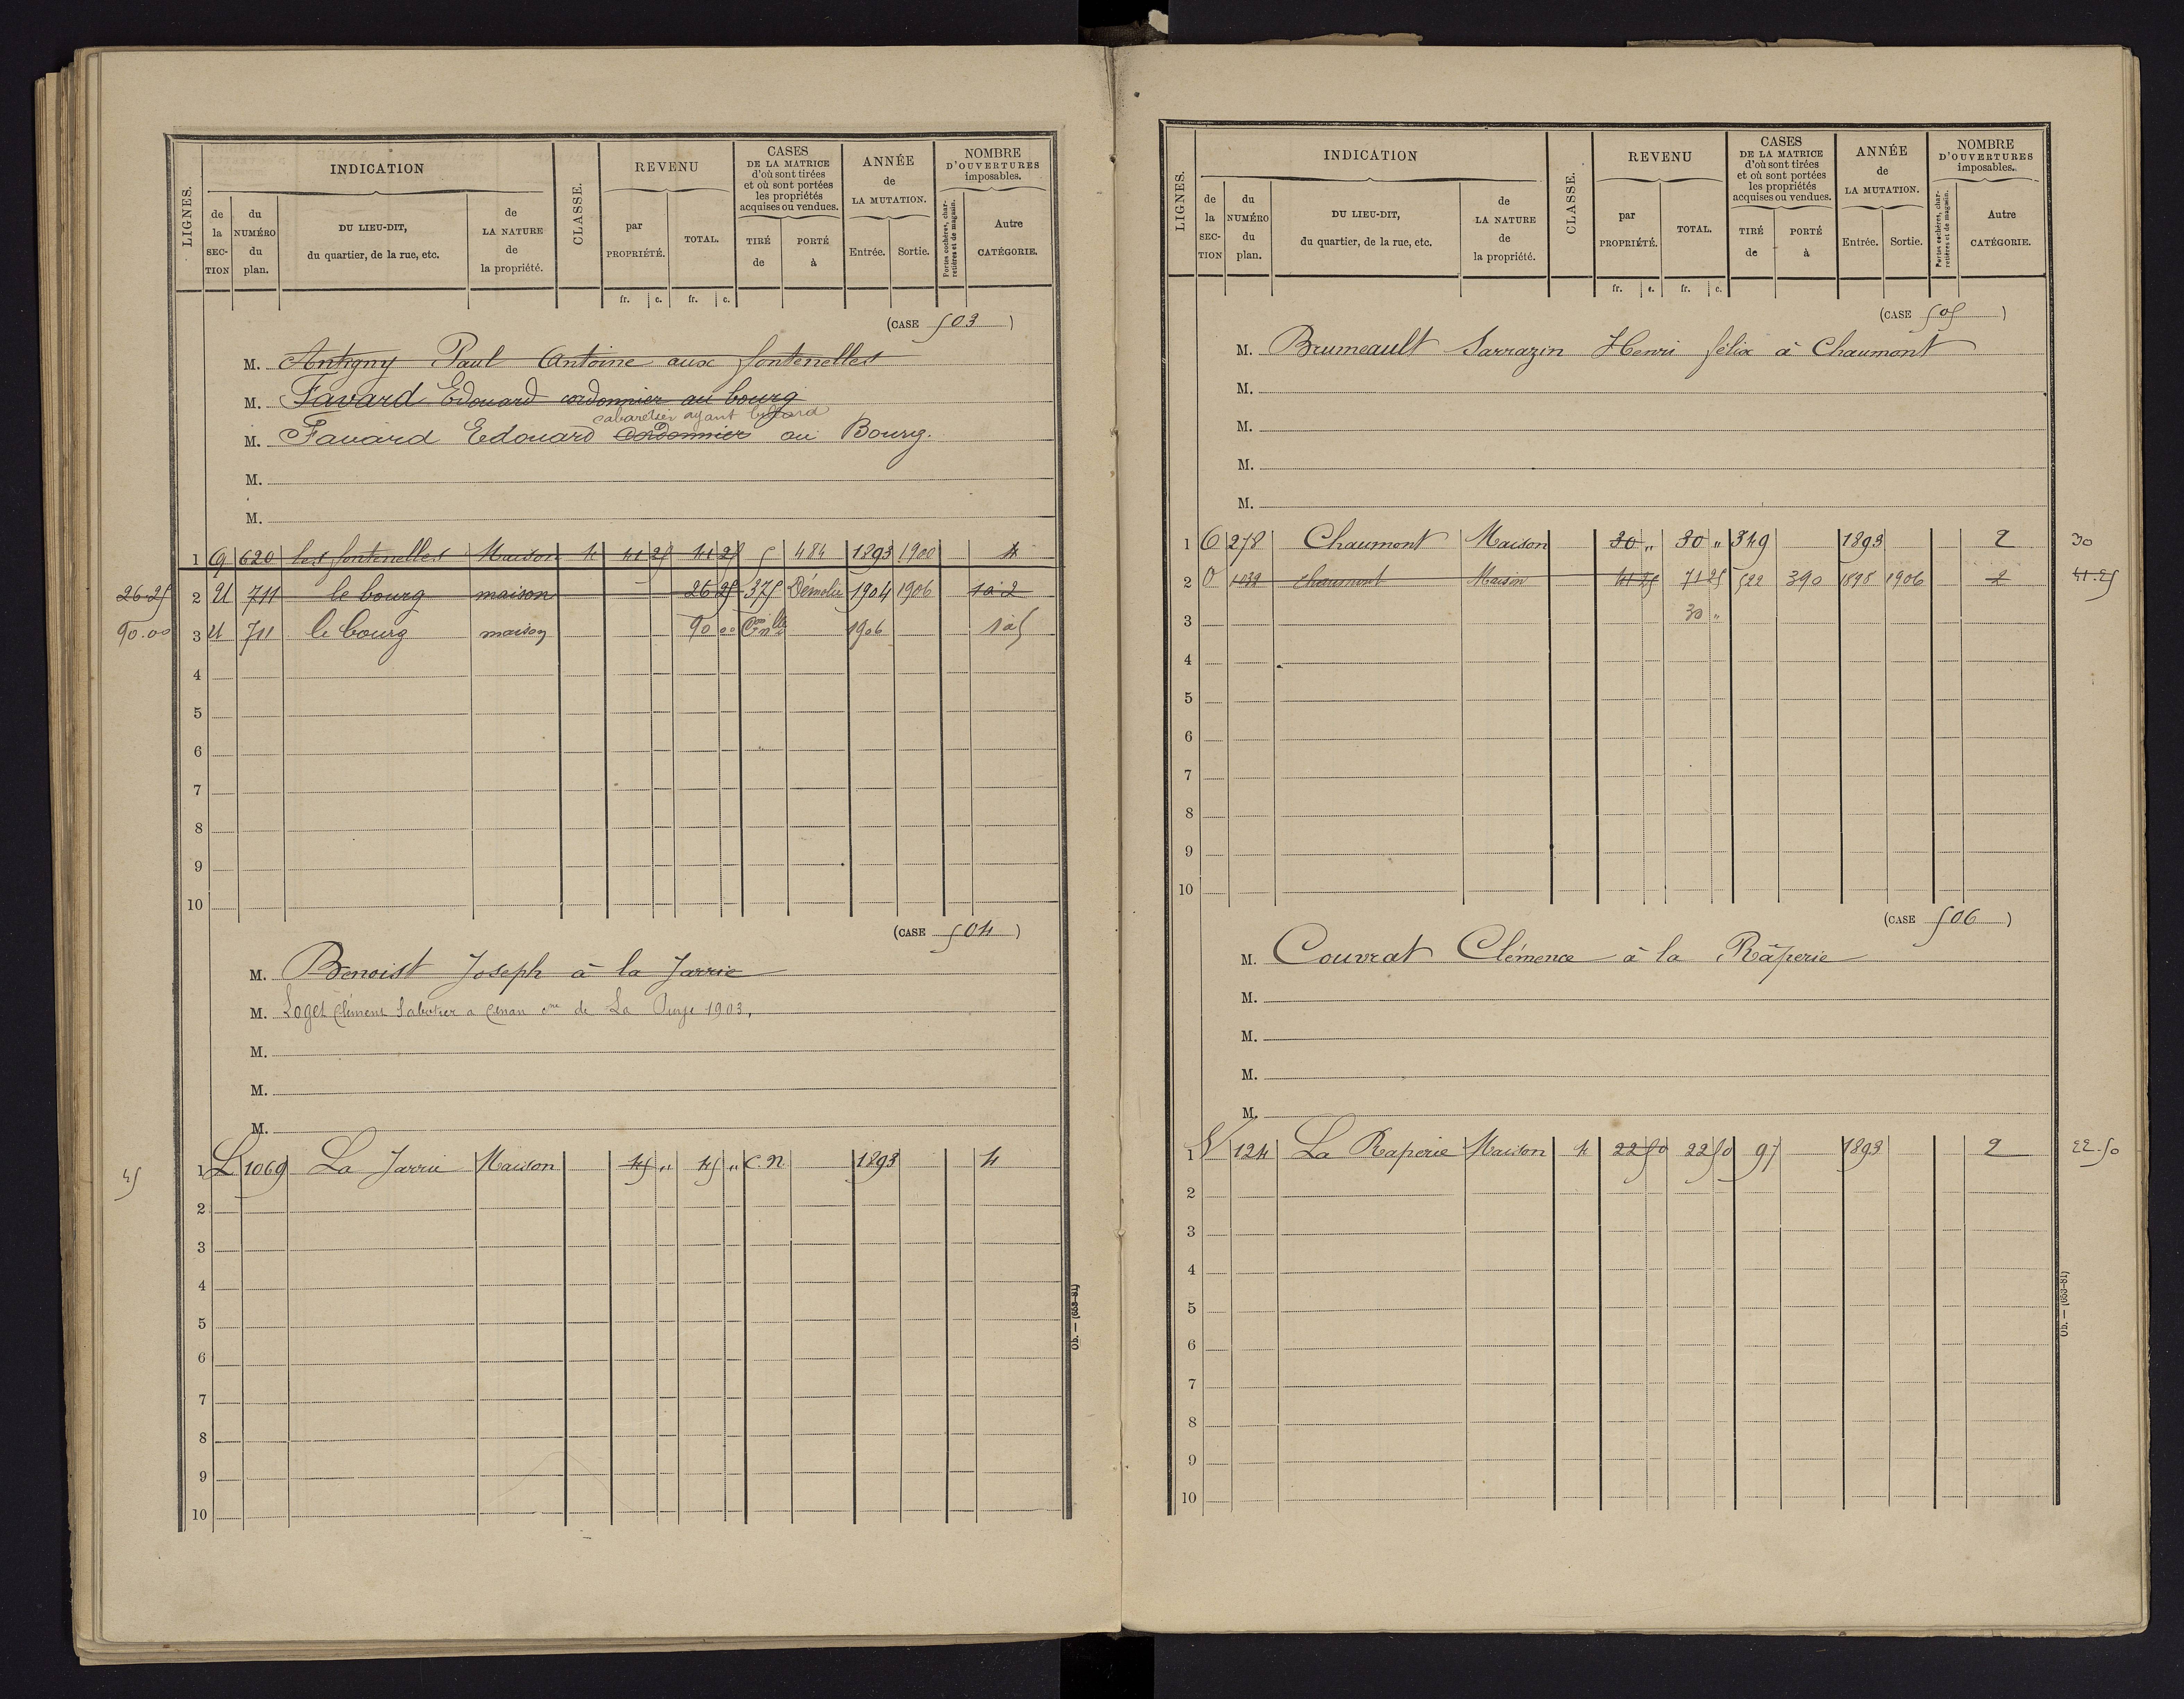 LIGNES. INDICATION CLASSE. REVENU CASES DE LA MATRICE d'où sont tirées et où sont portées les propriétés acquises ou vendues. ANNÉE de LA MUTATION. NOMBRE D'OUVERTURES imposables.
de la SECTION du NUMÉRO du plan. DU LIEU-DIT, du quartier, de la rue, etc. de LA NATURE de la propriété. par PROPRIÉTÉ. TOTAL. TIRÉ de PORTÉ à Entrée. Sortie. Portes cochères, charretières et de magasin. Autre CATÉGORIE.
fr. c. fr. c.
(CASE 503)
M. Antigny Paul Antoine aux fontenelles
M. Favard Edouard cordonnier au bourg
cabaretier ayant billard
M. Favard Edouard Cordonnier au Bourg.
M.
M.
1 Q 620 les fontenelles Maison 4 41 25 41 25 5 484 1893 1900 4
26-25 2 U 711 le bourg maison 26 25 375 Démolie 1904 1906 1 à 2
90.00 3 U 711 le bourg maison 90 00 1906 1 à 5
4
5
6
7
8
9
10
(CASE 504)
M. Benoist Joseph à la Jarrie
M. Loget Clément Sabotier a Cenan cne de La Puye 1903.
M.
M.
M.
45 1 L 1069 La Jarrie Maison 45 " 45 " C.N 1893 4
2
3
4
5
6
7
8
9
10
Ob. — (653-81)
LIGNES. INDICATION CLASSE. REVENU CASES DE LA MATRICE d'où sont tirées et où sont portées les propriétés acquises ou vendues. ANNÉE de LA MUTATION. NOMBRE D'OUVERTURES imposables.
de la SECTION du NUMÉRO du plan. DU LIEU-DIT, du quartier, de la rue, etc. de LA NATURE de la propriété. par PROPRIÉTÉ. TOTAL. TIRÉ de PORTÉ à Entrée. Sortie. Portes cochères, charretières et de magasin. Autre CATÉGORIE.
fr. c. fr. c.
(CASE 505)
M. Brumeault Sarrazin Henri félix à Chaumont
M.
M.
M.
M.
1 O 278 Chaumont Maison 30 " 30 " 349 1893 2 30
2 O 1032 chaumont Maison 41 25 71 25 522 390 1898 1906 2 41.25
3 30 "
4
5
6
7
8
9
10
(CASE 506)
M. Couvrat Clémence à la Râperie
M.
M.
M.
M.
1 V 124 La Raperie Maison 4 22 50 22 50 97 1893 2 22.50
2
3
4
5
6
7
8
9
10
Ob. — (653-81)